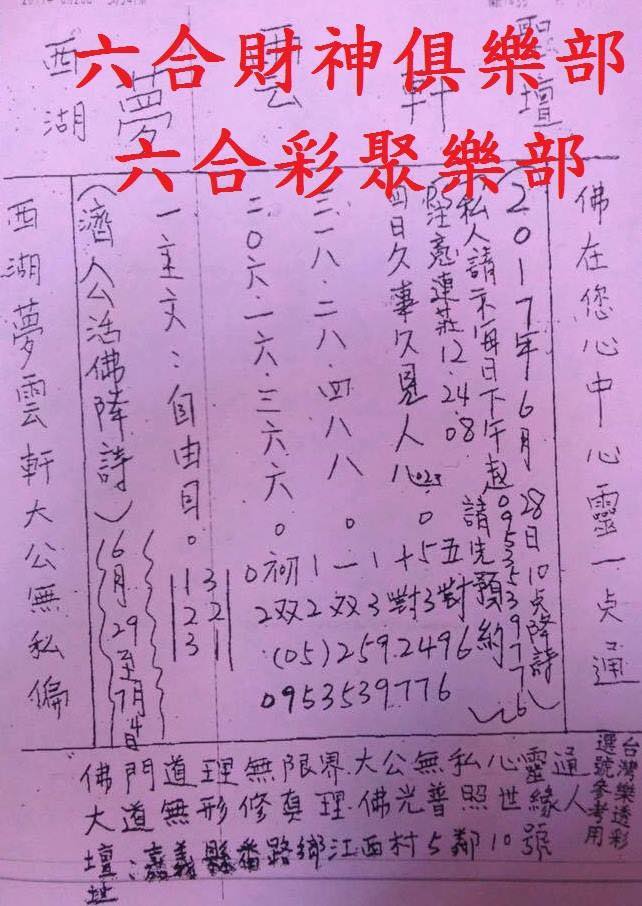 六合財神俱樂部
六合彩聚樂部
西湖夢雲軒聖壇
佛在您心中心靈一点通
(2017年6月28日10点降詩)
(私人請示每日下午起0953539776)
請先預約
12.24.08
四日久事久見人八
三一八.二八.四八八。
二0六.一六.三六六。
一主文:自由目。
五對
5 3對
十對
1 3
一双
1 2
初双
0 2
3 2 1
1 2 3
(05)2592496
0953539776
(濟人公活佛降詩)
(6月29至7月4日)
西湖夢雲軒大公無私偏
佛門道理無限界大公無私心靈通
大道無形修真理佛光普照世緣人
壇址:嘉義縣番路鄉江西村5鄰10號
台灣樂透彩
選號參考用